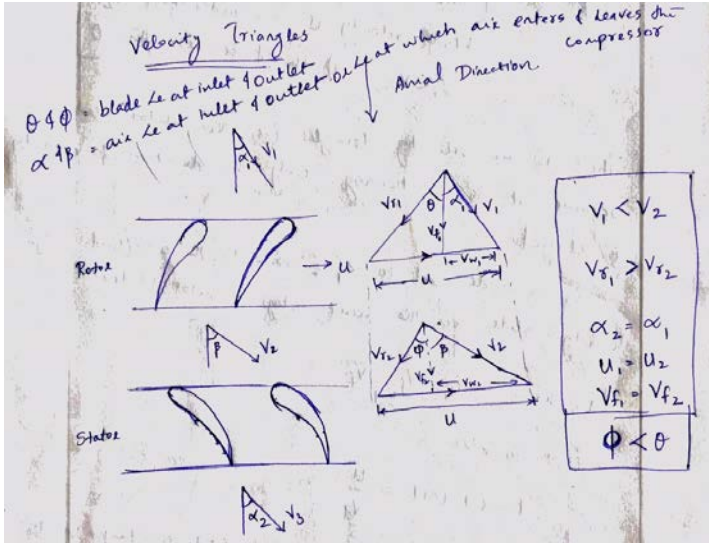 Velocity Triangles
θ & ϕ = blade ∠e at inlet & outlet
α & β = air ∠e at inlet & outlet or ∠e at which air enters & leaves the
compressor
Axial Direction
α₁ V₁
Rotor
→ U
Vr₁ θ α₁ V₁
Vf₁ Vw₁
U
β V₂
Vr₂ ϕ β V₂
Vf₂ Vw₂
U
Stator
α₂ V₃
V₁ < V₂
Vr₁ > Vr₂
α₂ = α₁
U₁ = U₂
Vf₁ = Vf₂
ϕ < θ